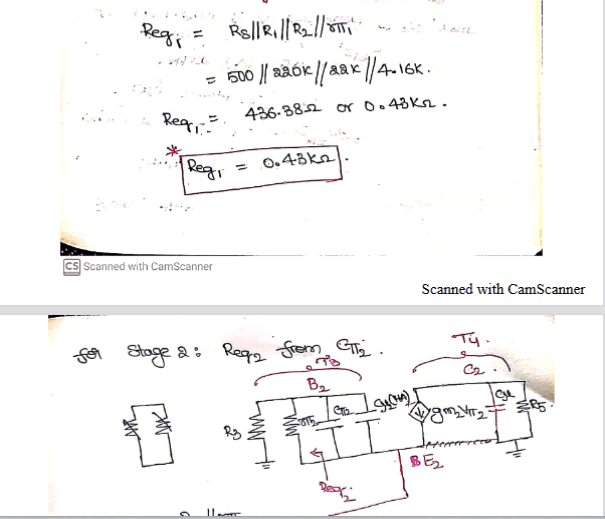 Req₁ = RS||R₁||R₂||rπ₁
= 500 || 220K || 22K || 4.16K.
Req₁ = 436.38Ω or 0.43KΩ.
* Req₁ = 0.43KΩ.
CS Scanned with CamScanner
Scanned with CamScanner
for Stage 2: Req₂ from Cπ₂.
T3
T4
B₂
C₂
R3
rπ₂
Cπ₂
gm₂Vπ₂
Cμ
R5
BE₂
Req₂